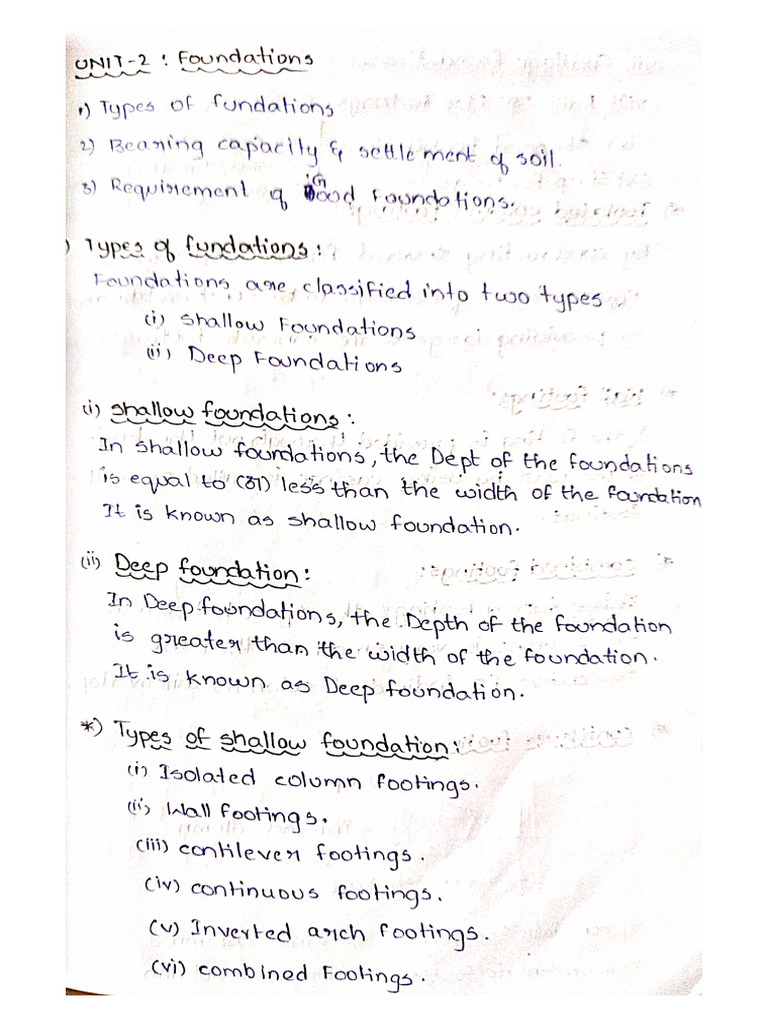 UNIT-2 : Foundations
1) Types of fundations
2) Bearing capacity & settlement of soil.
3) Requirement of Good Foundations.
) Types of fundations :
Foundations are, classified into two types
(i) Shallow Foundations
(ii) Deep Foundations
(i) Shallow foundations :
In shallow foundations, the Dept of the foundations
is equal to (or) less than the width of the foundation
It is known as shallow foundation.
(ii) Deep foundation :
In Deep foundations, the Depth of the foundation
is greater than the width of the foundation.
It is known as Deep foundation.
*) Types of shallow foundation :
(i) Isolated column footings.
(ii) Wall footings.
(iii) cantilever footings.
(iv) continuous footings.
(v) Inverted arch footings.
(vi) combined Footings.